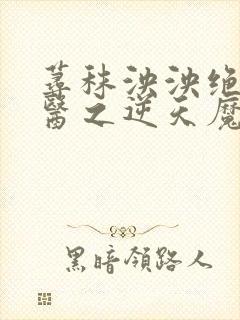 荨秣泱泱绝
醫之逆天魔
黑暗領路人